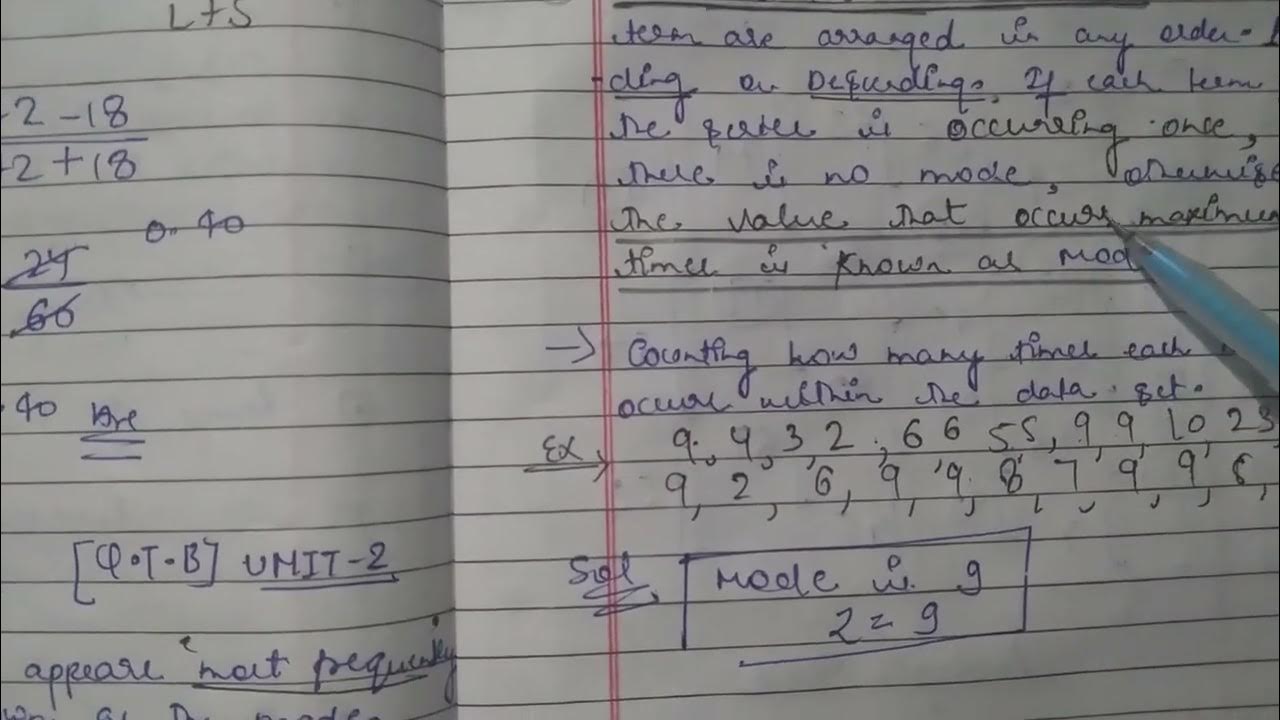 L+S
-2 -18
-2 +18
0.40
24
66
.40 Ans
[Q.T.B] UNIT-2
appears "most frequently"
as the mode
term are arranged in any order.
ding or Descending. If each term
the series is occurring once,
there is no mode, otherwise
the value that occurs maximum
times is known as Mod
→ Counting how many times each
occur within the data set.
Ex → 9, 4, 3, 2, 6 6 5 5, 9, 9, 10, 2 3
9, 2, 6, 9, 9, 8, 7, 9, 9,
Sol Mode is 9
Z = 9